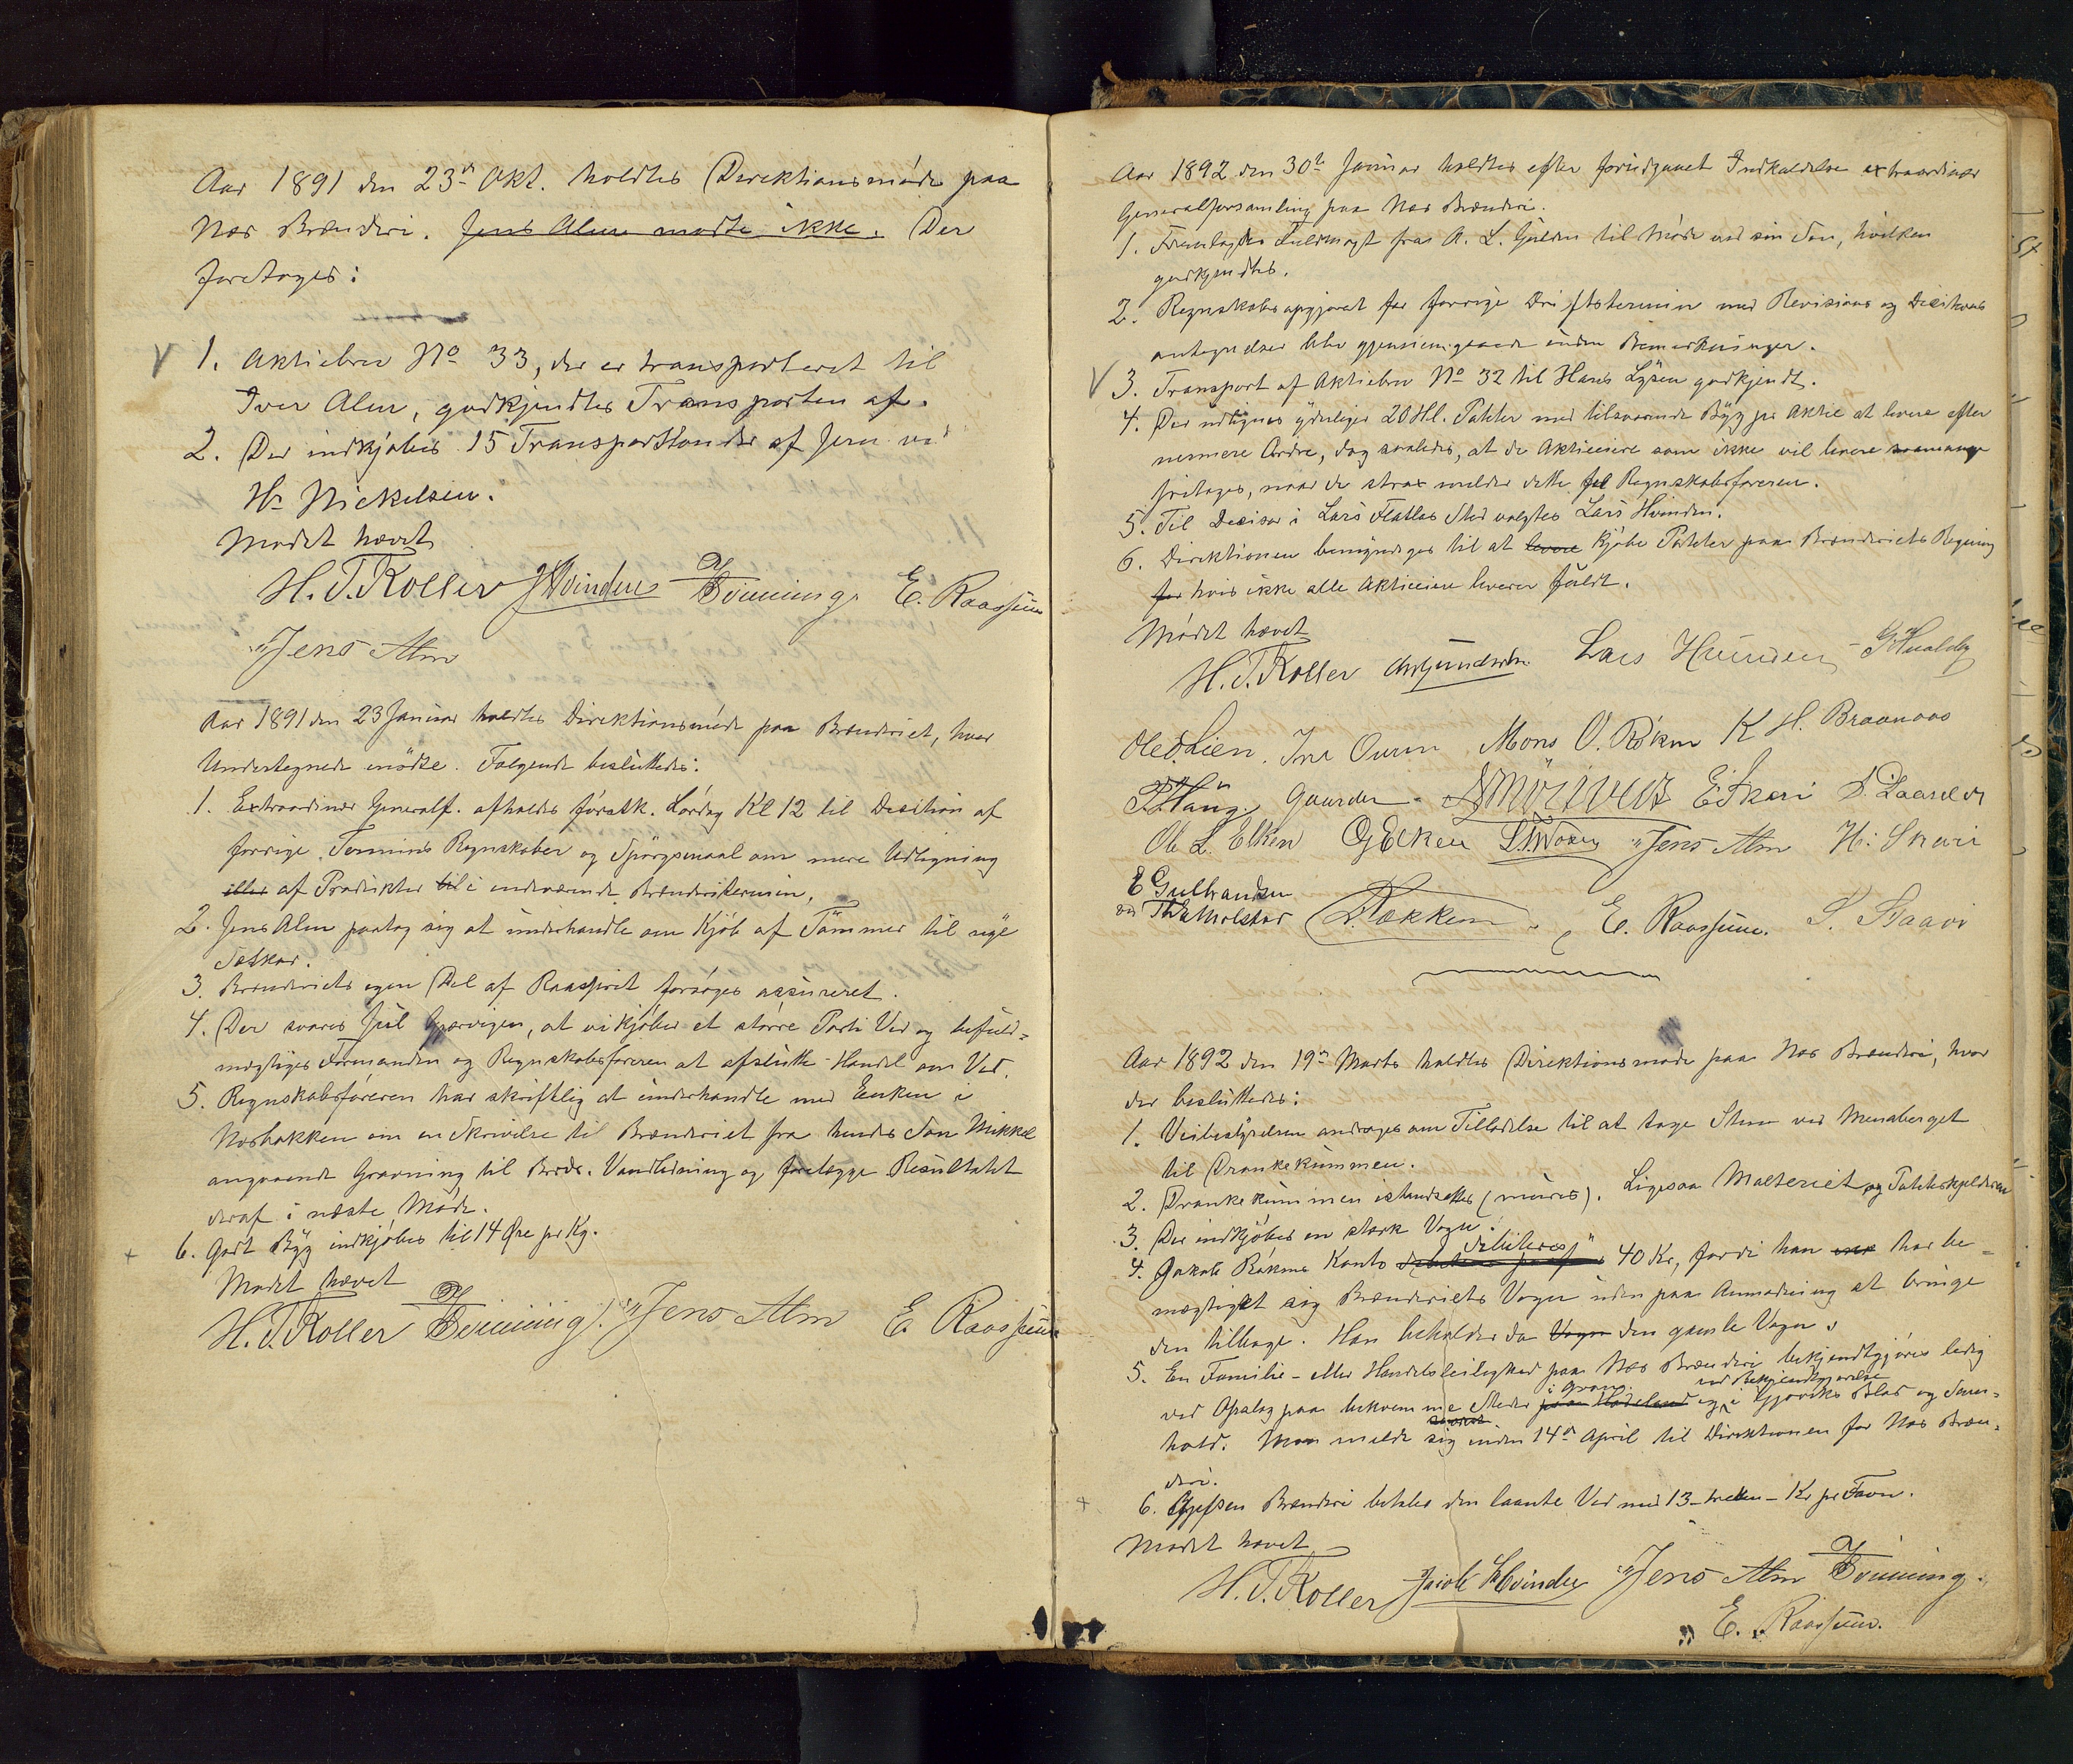 Aar 1891 den 23de Okt. holdtes Direktionsmøde paa
Næs Brænderi. Jens Alm mødte ikke. Der
foretoges:
1. Aktiebrev No 33, der er transporteret til
Iver Alm, godkjendtes Transporten af.
2. Der indkjøbes 15 Transporttønder af Jern ved
Hr Nickelsen.
Mødet hævet
H. T. Koller JHvinden Brünning E. Raassum
Jens Alm
Aar 1891 den 23 Januar holdtes Direktionsmøde paa Brænderiet, hvor
Undertegnede mødte. Følgende besluttedes:
1. Extraordinær Generalf. afholdes førstk. Lørdag Kl 12 til Decition af
forrige Termins Regnskaber og Spørgsmaal om mere Udligning
eller af Produkter til i indeværende Brænderitermin.
2. Jens Alm paatog sig at underhandle om Kjøb af Tømmer til nye
Sætkar.
3. Brænderiets egen Del af Raasprit forsøges assureret.
4. Der svares Juul Gjærvigen, at vi kjøber et større Parti Ved og befuld=
mægtiges Formanden og Regnskabsføreren at afslutte Handel om Ved.
5. Regnskabsføreren har skriftlig at underhandle med Enken i
Næsbakken om en Skrivelse til Brænderiet fra hendes Søn Mikkel
angaaende Gravning til Brdr. Vandledning og forelægge Resultatet
deraf i næste Møde.
6. Godt Byg indkjøbes til 14 Øre pr Kg.
Mødet hævet
H. T. Koller Brünning. Jens Alm E. Raassum
Aar 1892 den 30te Januar holdtes efter foriudgaaet Indkaldelse extraordinær
Generalforsamling paa Næs Brænderi.
1. Fremlagdes Fuldmagt fra A. L. Gulden til Møde ved sin Søn, hvilken
godkjendtes.
2. Regnskabsopgjøret for forrige Driftstermin med Revisions og Decitions
antegnelser blev gjennemgaaede uden Bemærkninger.
3. Transport af Aktiebrev No 32 til Hans Lysen godkjendt.
4. Der udlignes yderligere 20 Hl. Poteter med tilsvarende Byg pr Aktie at levere efter
nærmere Ordre, dog saaledes, at de Aktieeiere som ikke vil levere saamange
fritages, naar de strax melder dette til Regnskabsføreren.
5. Til Decisor i Lars Flatlas Sted valgtes Lars Hvinden.
6. Direktionen bemyndiges til at levere kjøbe Poteter paa Brænderiets Regning
for hvis ikke alle Aktieeiere leverer fuldt.
Mødet hævet
H. T. Koller Lars Hvinden
Ole O. Lien. Mons O. Røken K H. Braanaas
P. Haug. Gaarder. E. Skari
Ole L. Elken OgElken Jens Alm H. Skari
E Gulbrandsen
ved Th. Molstad L. Tokken E. Raassum. S. Staavi
Aar 1892 den 19de Marts holdtes Direktionsmøde paa Næs Brænderi, hvor
der besluttedes:
1. Veibestyrelsen andrages om Tilladelse til at tage Sten ved Menaberget
til Drankekummen.
2. Drankekummen istandsættes (mures). Ligesaa Malteriet og Potetkjelderen
3. Der indkjøbes en stærk Vogn.
4. Jakob Røkens Konto debiteres 40 Kr, fordi han har be=
mægtiget sig Brænderiets Vogn uden paa Anmodning at bringe
den tilbage. Han beholder da Vogn den gamle Vogn.
5. En Familie- eller Handelsleilighed paa Næs Brænderi bekjendtgjøres ledig
i Gran ved Bekjendtgjørelse
ved Opslag paa bekvemme Steder paa Hadeland og i Gjøviks Blad og Sam=
hold. Man melde sig inden 14de April til Direktionen for Næs Bræn=
deri.
6. Brænderi betales den laante Ved med 13 - tretten - Kr pr Favn.
Mødet hævet
H. T. Koller Jacob Hvinden Jens Alm Brünning.
E. Raassum.